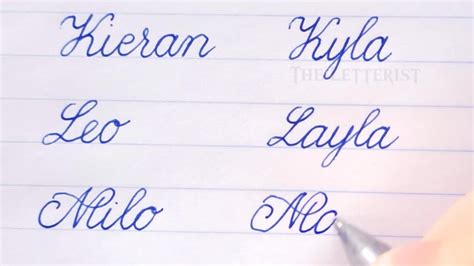 Kieran Kyla
THE LETTERIST
Leo Layla
Milo Mo